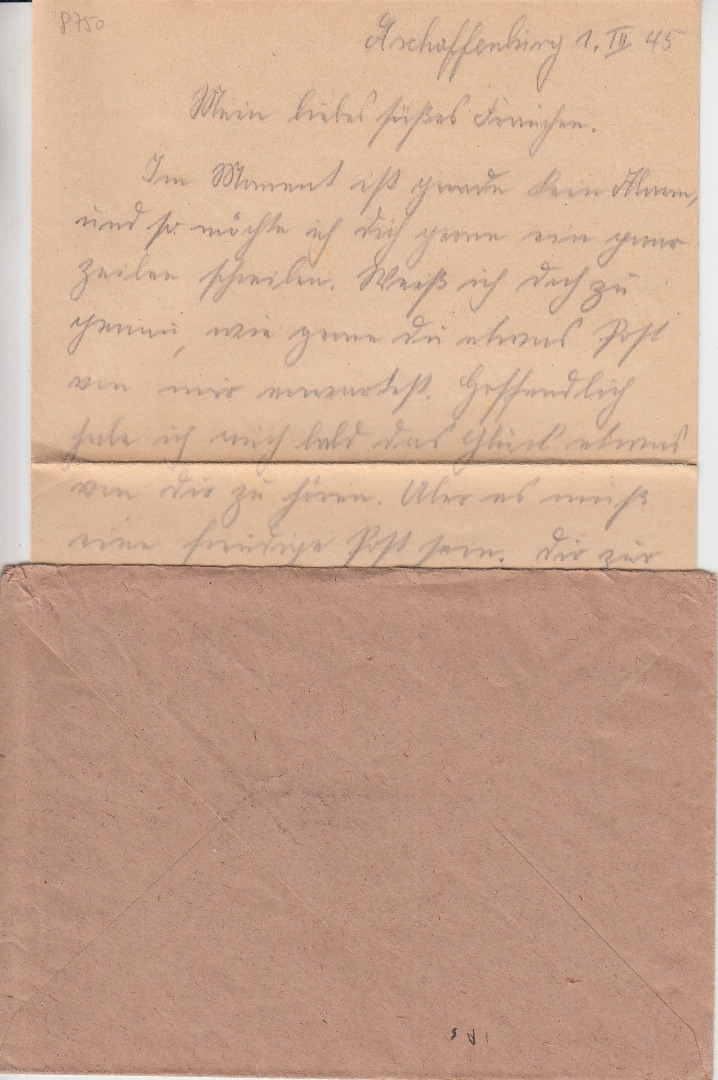 8750
Aschaffenburg 1. III 45
Mein liebes süßes Frauchen.
Im Moment ist gerade kein Alarm,
und so möchte ich Dich gerne ein paar
Zeilen schreiben. Weiß ich doch zu
genau, wie gerne du etwas Post
von mir erwartest. Hoffendlich
habe ich auch bald das Glück etwas
von dir zu hören. Aber es muß
eine freudige Post sein. Dir zur